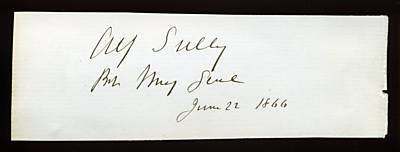 Alf Sully
Bvt Maj Genl
June 22 1866